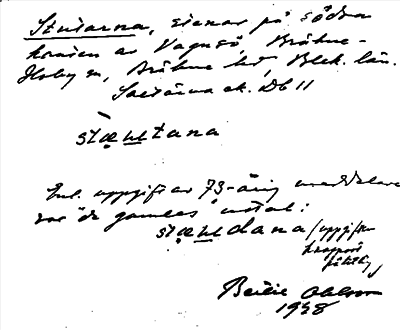 Stutarna, stenar på södra
kanten av Vagnsö, Bräkne-
Hoby sn, Bräkne hd, Blek. län.
ek. Db 11
stæwtana
Enl. uppgift av 73-årig meddelare
var de gamles uttal:
stæwdana /uppgiften
knappast
1938